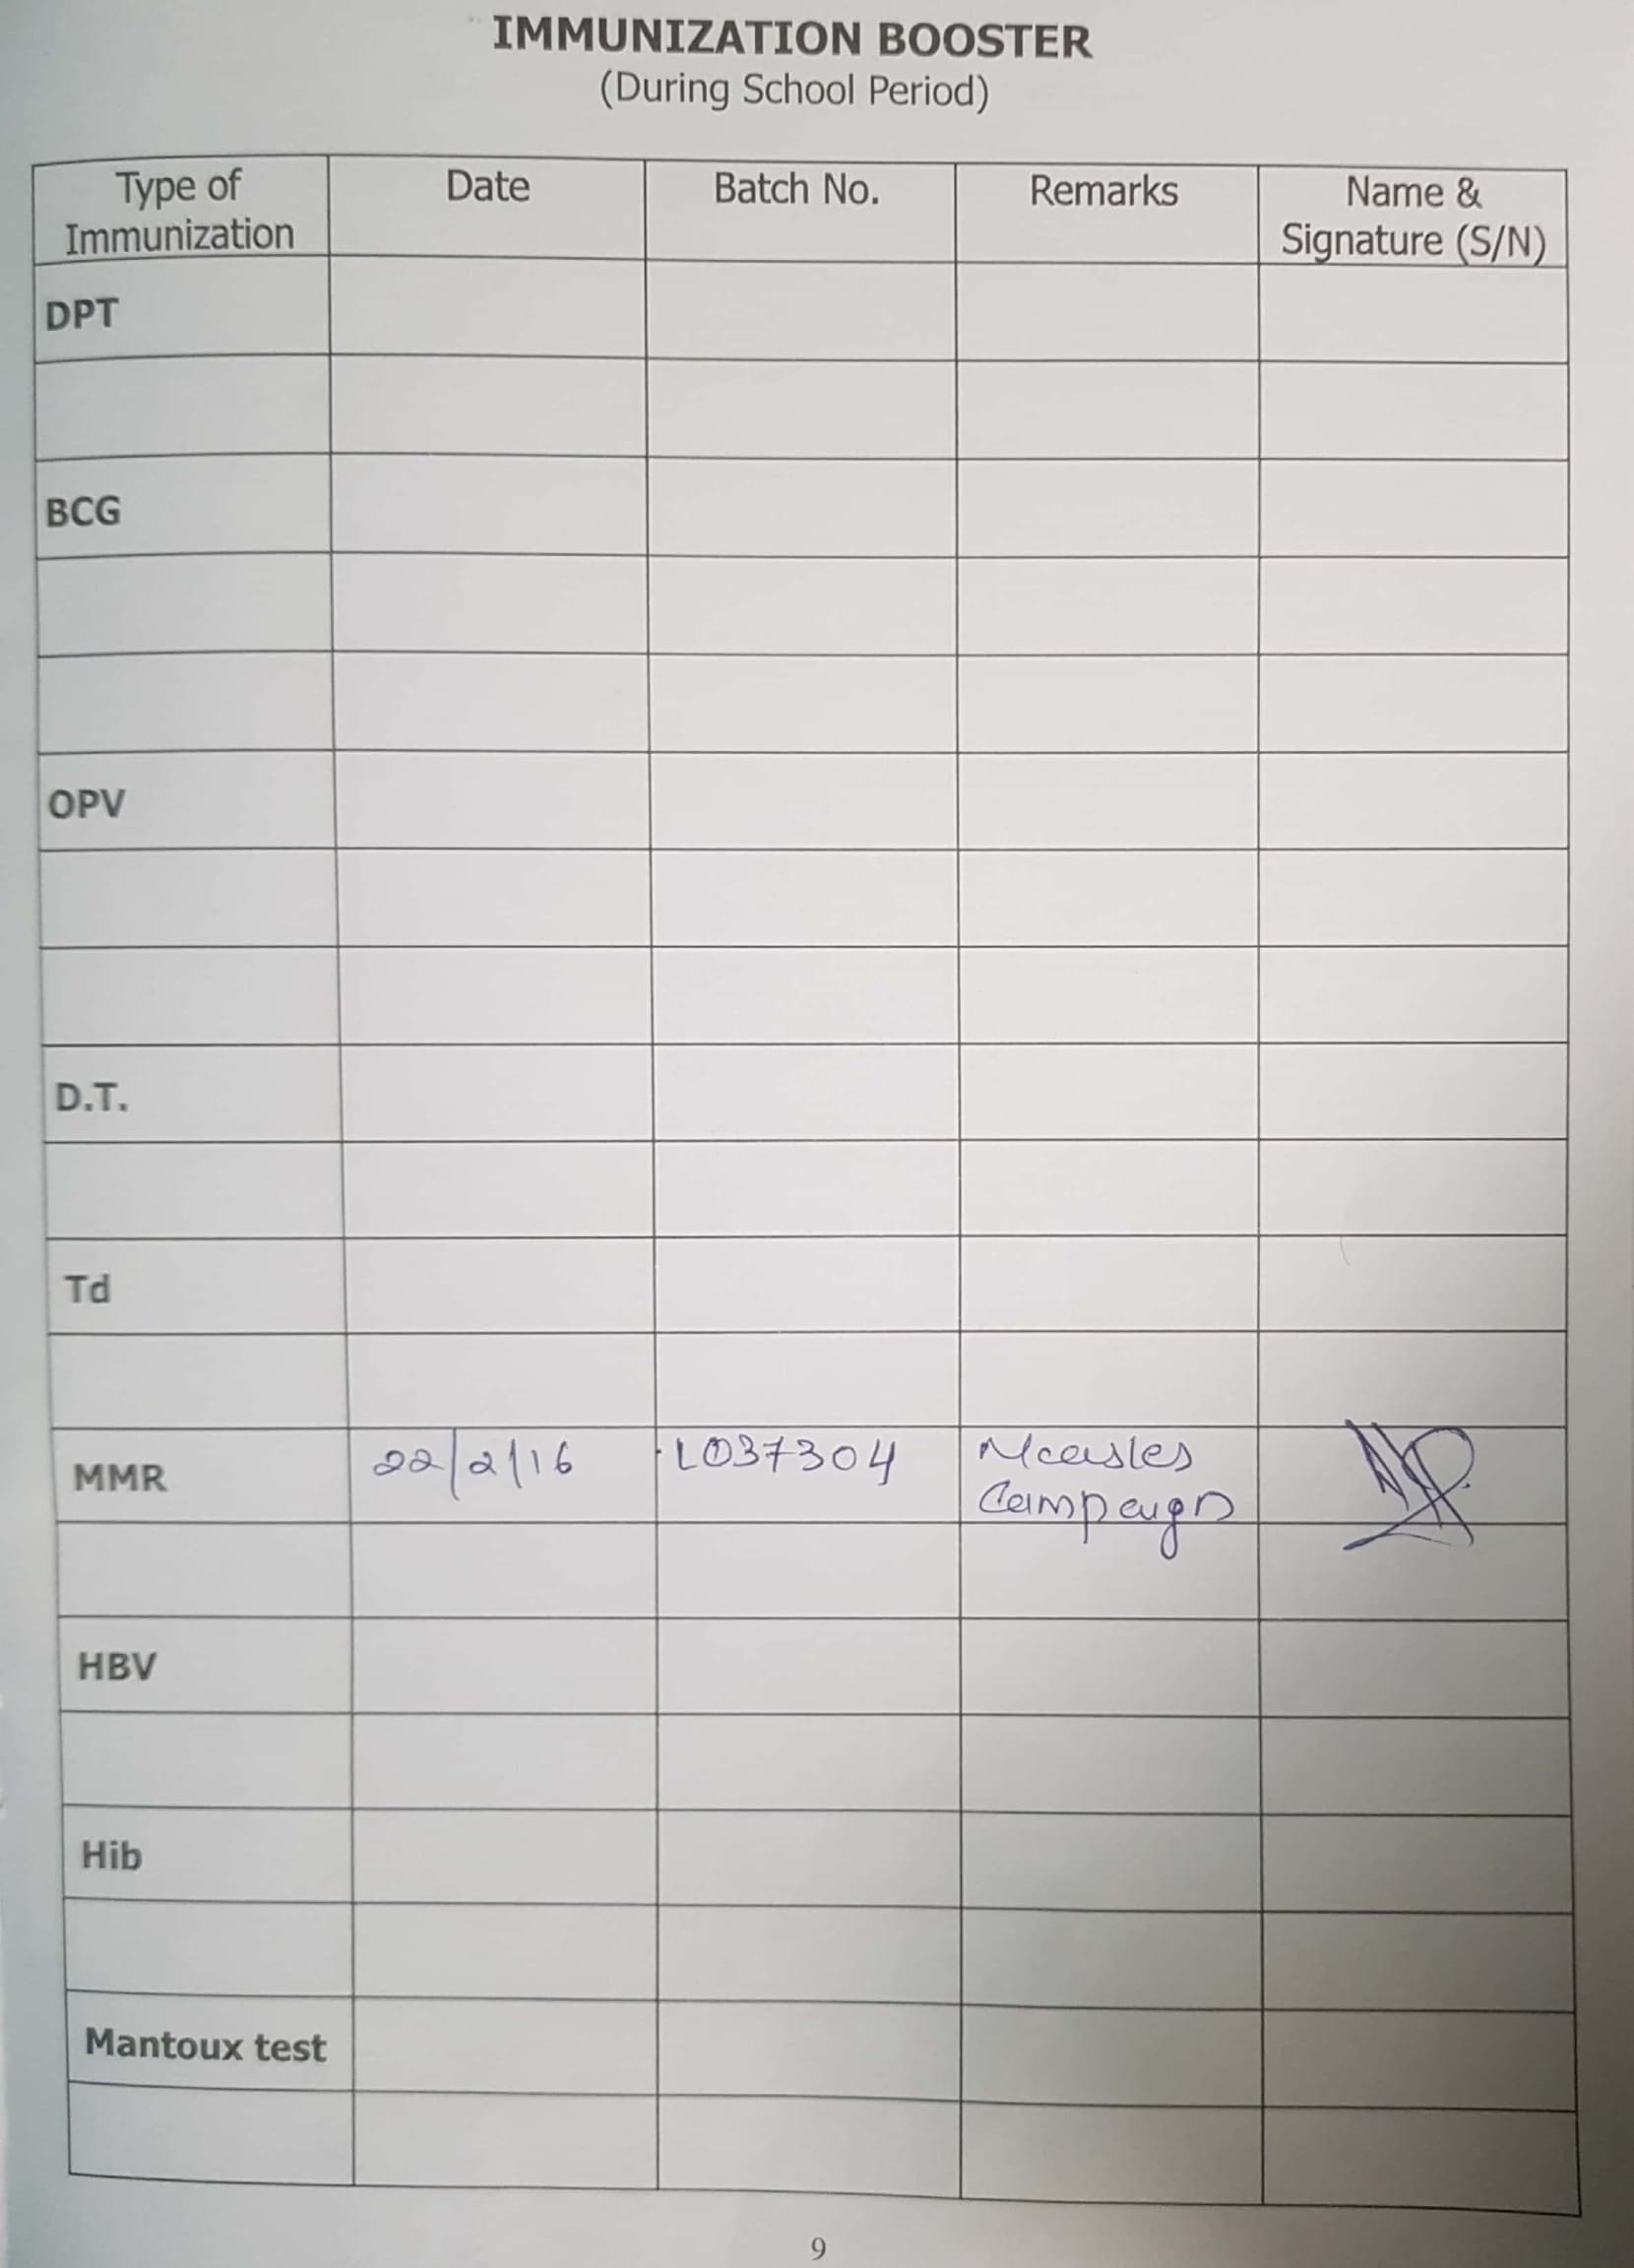 IMMUNIZATION BOOSTER
(During School Period)
Type of Immunization Date Batch No. Remarks Name & Signature (S/N)
DPT
BCG
OPV
D.T.
Td
MMR 22/2/16 L037304 Measles Campaign
HBV
Hib
Mantoux test
9